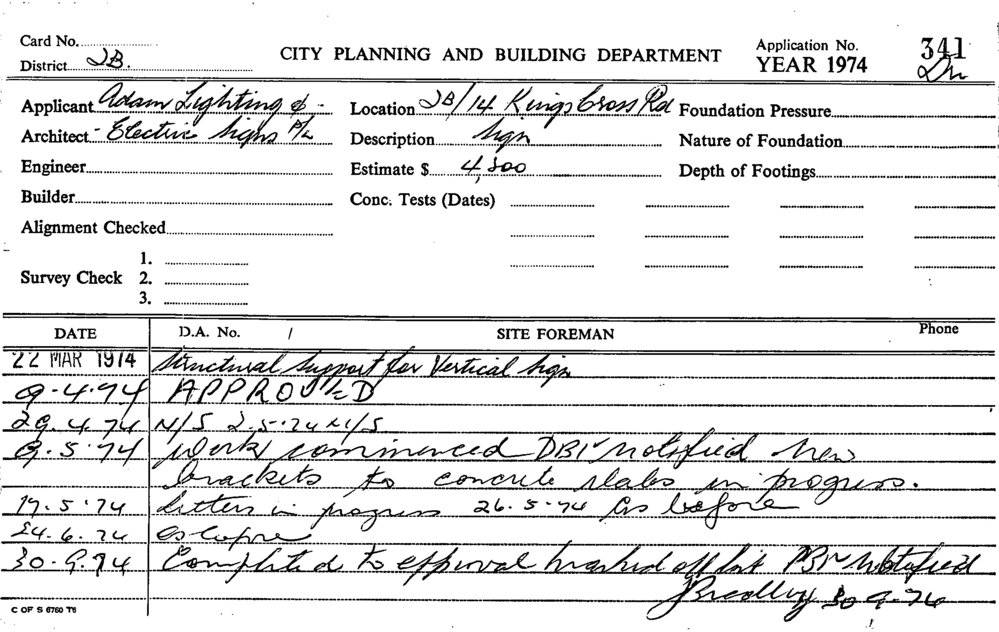 Card No.
District 2B.
CITY PLANNING AND BUILDING DEPARTMENT
Application No. 341
YEAR 1974
Applicant Adam Lighting &
Architect Electric Signs P/L
Engineer
Builder
Alignment Checked
Survey Check 1.
2.
3.
Location 2B/14 Kings Cross Rd
Description Sign
Estimate $ 4,800
Conc. Tests (Dates)
Foundation Pressure
Nature of Foundation
Depth of Footings
DATE D.A. No. / SITE FOREMAN Phone
22 MAR 1974 Structural Support for Vertical Sign
9-4-74 APPROVED
29.4.74 N/S 2-5-74 N/S
9.5.74 Work commenced DBS notified New
brackets to concrete slabs in progress.
17.5.74 Letters in progress 26.5.74 As before
24.6.74 As before
30.9.74 Completed to approval marked off list notified
Bradley 30 9-74
C OF S 6760 T6